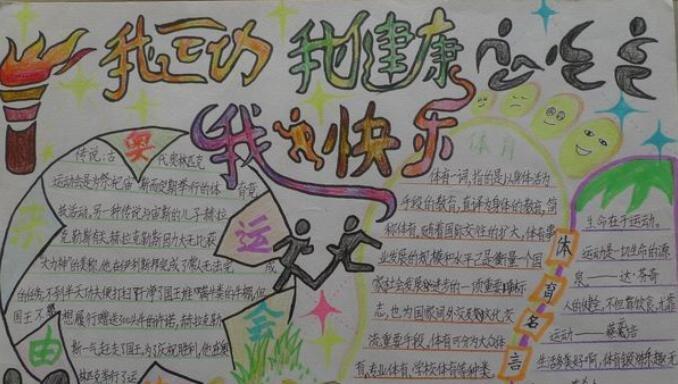 我运动 我健康
我快乐
奥运会由来
传说,古代奥林匹克
运动会是为祭祀宙斯而定期举行的体育竞
技活动,另一种传说与宙斯的儿子赫拉
克勒斯有关,赫拉克勒斯因力大无比获
"大力神"的美称,他在伊利斯城邦完成了常人无法完成
的任务,不到半天功夫便打扫干净了国王堆满牛粪的牛棚,但
国王不想履行赠送300头牛的许诺,赫拉克勒
斯一气赶走了国王,为了庆祝胜利,他
林匹克举行了运
体育
体育一词,指的是以身体活为
手段的教育,直译为身体的教育,简
称体育,随着国际交往的扩大,体育事
业发展的规模和水平已是衡量一个国
家社会发展进步的一项重要标
志,也为国家间外交及文化交
流重要手段,体育可分为大众体
育,专业体育,学校体育等种类
体育名言
生命在于运动.
运动是一切生命的源
泉.——达·芬奇
人的健全,不但靠饮食,尤靠
运动——蔡元培
生活多美好啊,体育锻炼乐趣无